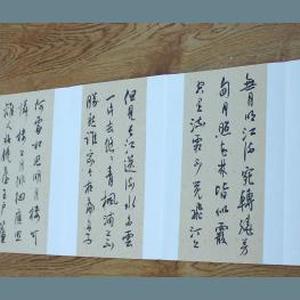 無月明江流宛轉繞芳
甸月照花林皆似霰
空里流霜不覺飛汀上
但見長江送流水白雲
一片去悠悠青楓浦上不
勝愁誰家今夜扁舟子
何處相思明月樓可
憐樓上月徘徊應照
離人妝鏡臺玉戶簾